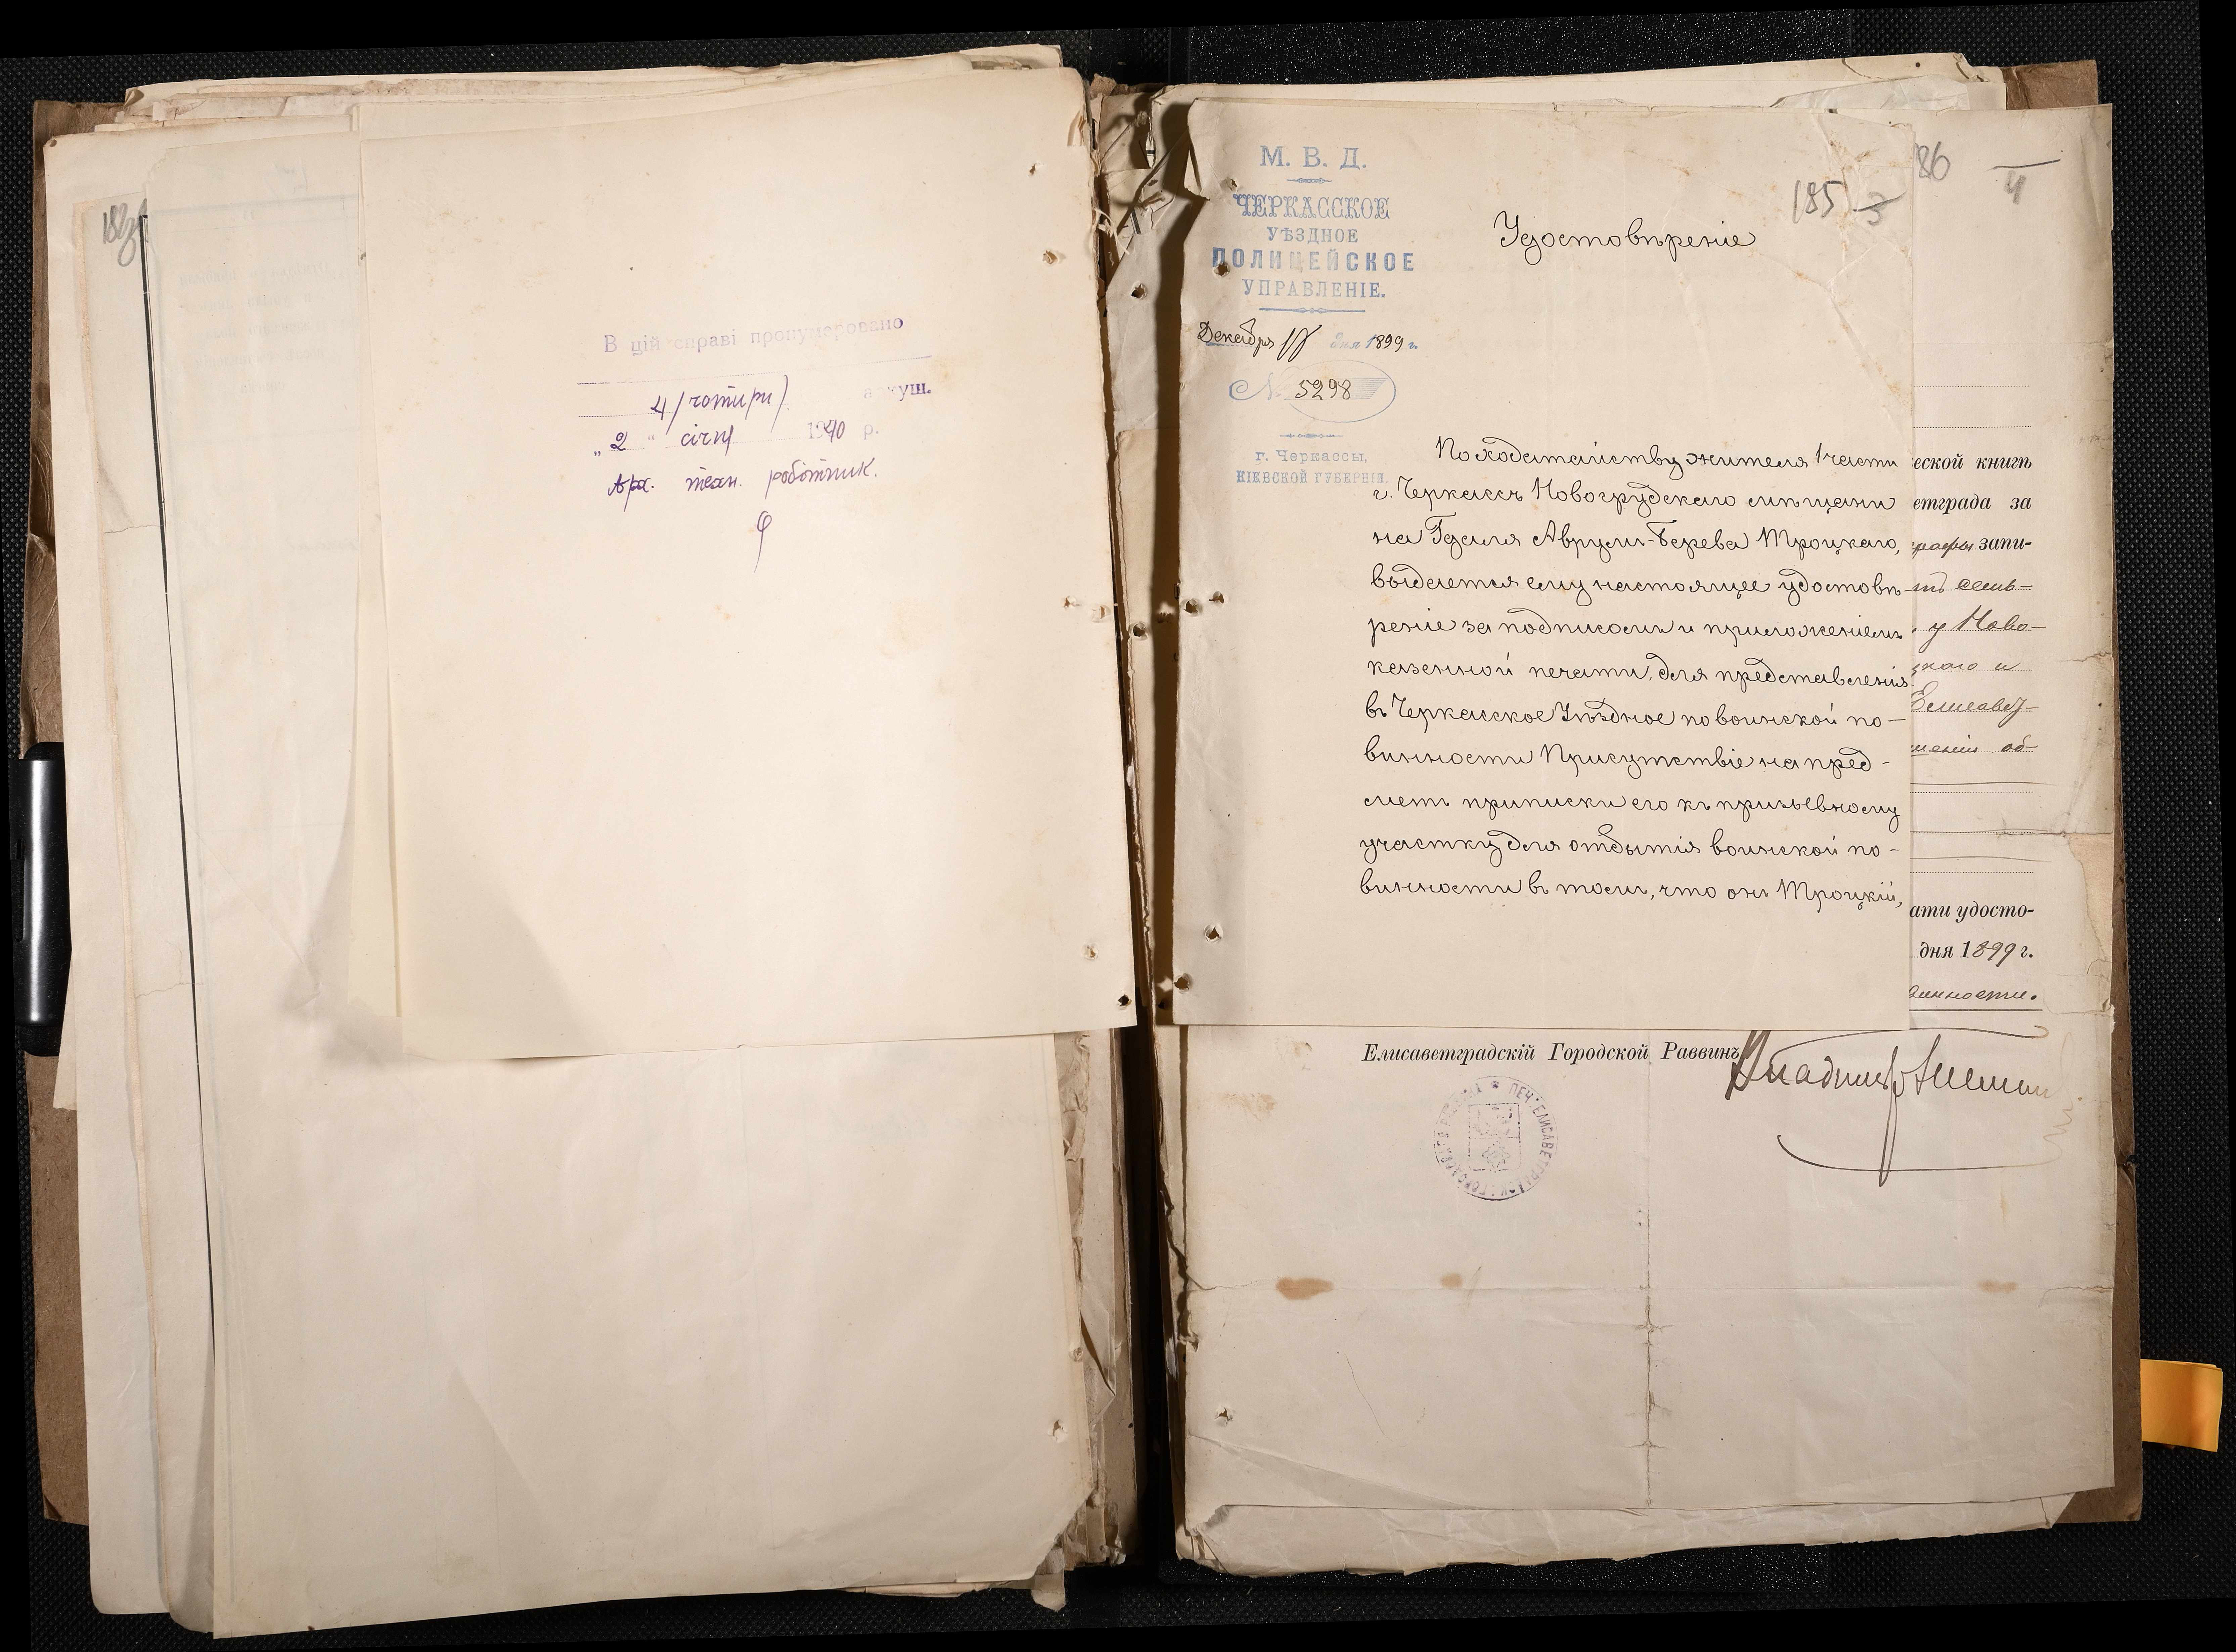 В цій справі пронумеровано
4 (чотири) аркуш.
„2" січня 1940 р.
Арх. техн. робітник.
М. В. Д.
ЧЕРКАССКОЕ
УѢЗДНОЕ
ПОЛИЦЕЙСКОЕ
УПРАВЛЕНІЕ.
Декабря 18 дня 1899 г.
№ 5298
г. Черкассы,
КІЕВСКОЙ ГУБЕРНІИ.
185 3
Удостовѣреніе
По ходатайству жителя 1 части
г. Черкассъ Новогрудскаго мѣщани
на Гдаля Аврумъ-Берева Троцкаго,
выдается ему настоящее удостовѣ-
реніе за подписомъ и приложеніемъ
казенной печати, для представленія
въ Черкасское Уѣздное по воинской по-
винности Присутствіе на пред-
метъ приписки его къ призывному
участку для отбытія воинской по-
винности въ томъ, что онъ Троцкій,
86 4
еской книгѣ
етграда за
графы запи-
семь-
у Ново-
цкаго и
Елисавет-
об-
ати удосто-
дня 1899 г.
Елисаветградскій Городской Раввинъ
Владимір